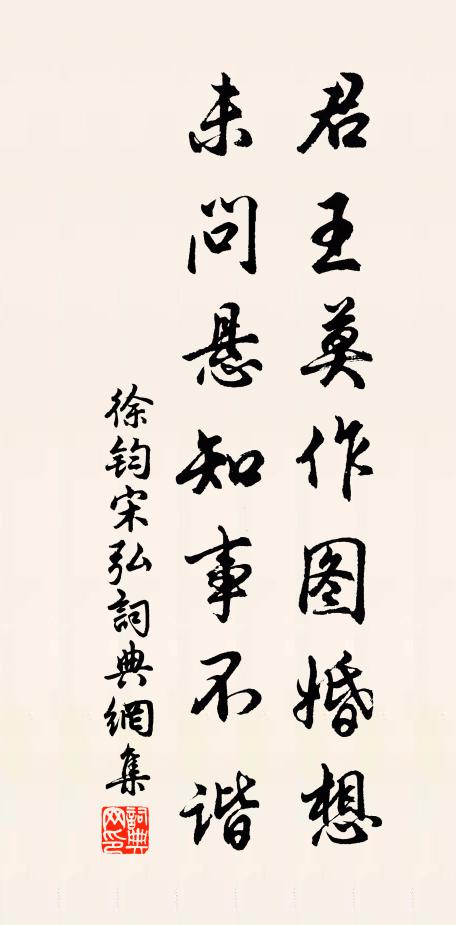 君王莫作图婚想
未问悬知事不谐
徐钧宋弘詞典網集
詞典網印